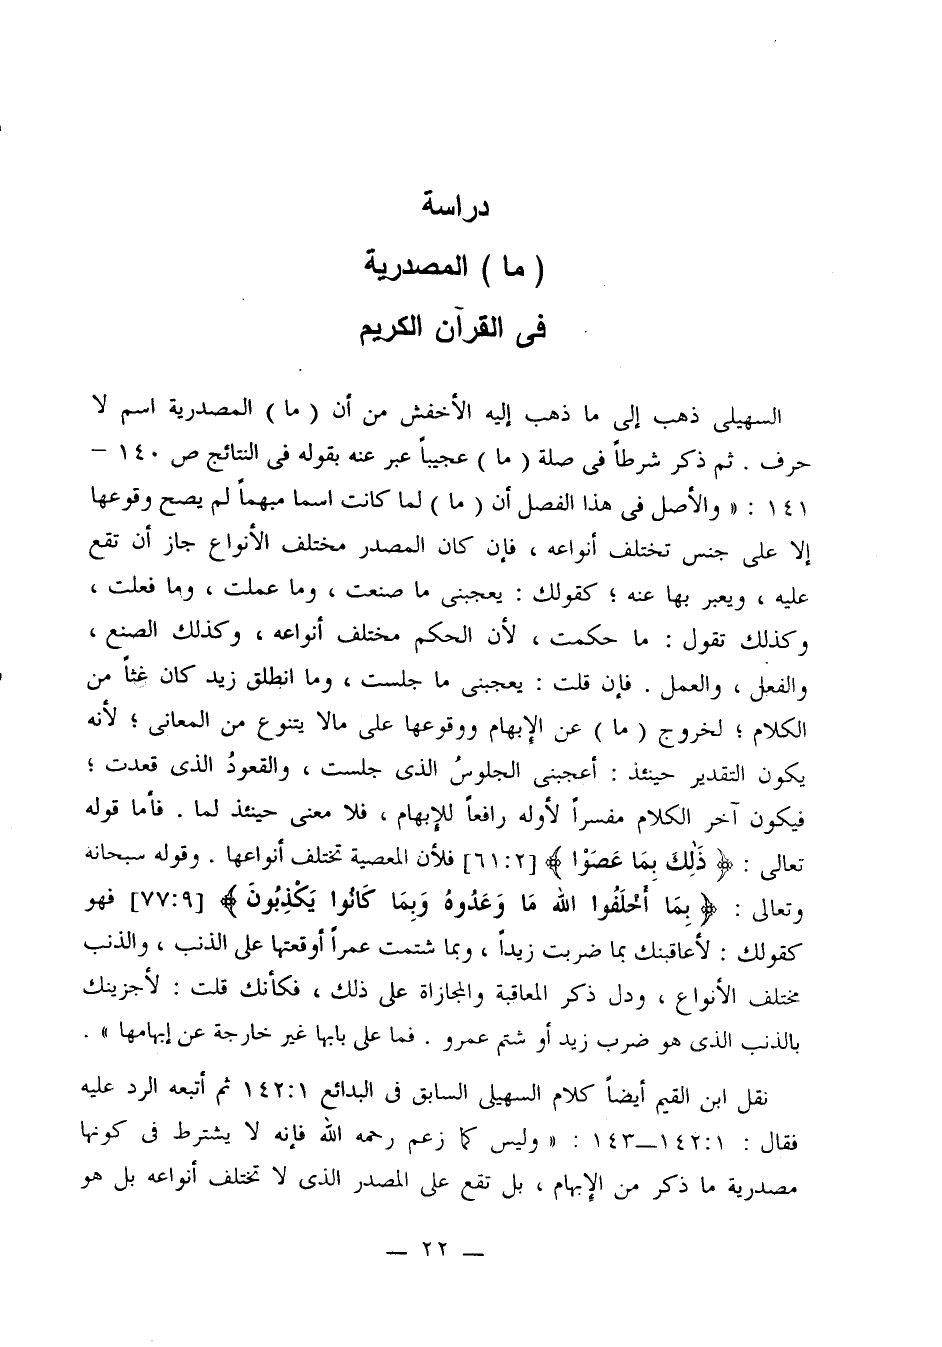 دراسة
( ما ) المصدرية
فى القرآن الكريم
السهيلى ذهب إلى ما ذهب إليه الأخفش من أن ( ما ) المصدرية اسم لا
حرف . ثم ذكر شرطاً فى صلة ( ما ) عجيباً عبر عنه بقوله فى النتائج ص ١٤٠ –
١٤١ : « والأصل فى هذا الفصل أن ( ما ) لما كانت اسما مبهماً لم يصح وقوعها
إلا على جنس تختلف أنواعه ، فإن كان المصدر مختلف الأنواع جاز أن تقع
عليه ، ويعبر بها عنه ؛ كقولك : يعجبنى ما صنعت ، وما عملت ، وما فعلت ،
وكذلك تقول : ما حكمت ، لأن الحكم مختلف أنواعه ، وكذلك الصنع ،
والفعل ، والعمل . فإن قلت : يعجبنى ما جلست ، وما انطلق زيد كان غثاً من
الكلام ؛ لخروج ( ما ) عن الإبهام ووقوعها على مالا يتنوع من المعانى ؛ لأنه
يكون التقدير حينئذ : أعجبنى الجلوسُ الذى جلست ، والقعودُ الذى قعدت ؛
فيكون آخر الكلام مفسراً لأوله رافعاً للإبهام ، فلا معنى حينئذ لما . فأما قوله
تعالى : ﴿ ذَٰلِكَ بِمَا عَصَوْا ﴾ [٦١:٢] فلأن المعصية تختلف أنواعها . وقوله سبحانه
وتعالى : ﴿ بِمَا أَخْلَفُوا الله مَا وَعَدُوهُ وَبِمَا كَانُوا يَكْذِبُونَ ﴾ [٧٧:٩] فهو
كقولك : لأعاقبنك بما ضربت زيداً ، وبما شتمت عمراً أوقعتها على الذنب ، والذنب
مختلف الأنواع ، ودل ذكر المعاقبة والمجازاة على ذلك ، فكأنك قلت : لأجزينك
بالذنب الذى هو ضرب زيد أو شتم عمرو . فما على بابها غير خارجة عن إبهامها » .
نقل ابن القيم أيضاً كلام السهيلى السابق فى البدائع ١٤٢:١ ثم أتبعه الرد عليه
فقال : ١٤٢:١—١٤٣ : « وليس كما زعم رحمه الله فإنه لا يشترط فى كونها
مصدرية ما ذكر من الإبهام ، بل تقع على المصدر الذى لا تختلف أنواعه بل هو
— ٢٢ —